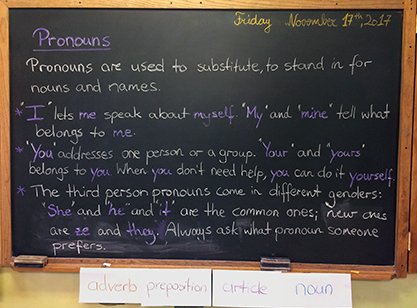 Friday November 17th, 2017
Pronouns
Pronouns are used to substitute, to stand in for
nouns and names.
* "I" lets me speak about myself. "My" and "mine" tell what
belongs to me.
* "You" addresses one person or a group. "Your" and "yours"
belongs to you. When you don't need help, you can do it yourself.
* The third person pronouns come in different genders:
"She" and "he" and "it" are the common ones; new ones
are ze and they. Always ask what pronoun someone
prefers.
adverb preposition article noun